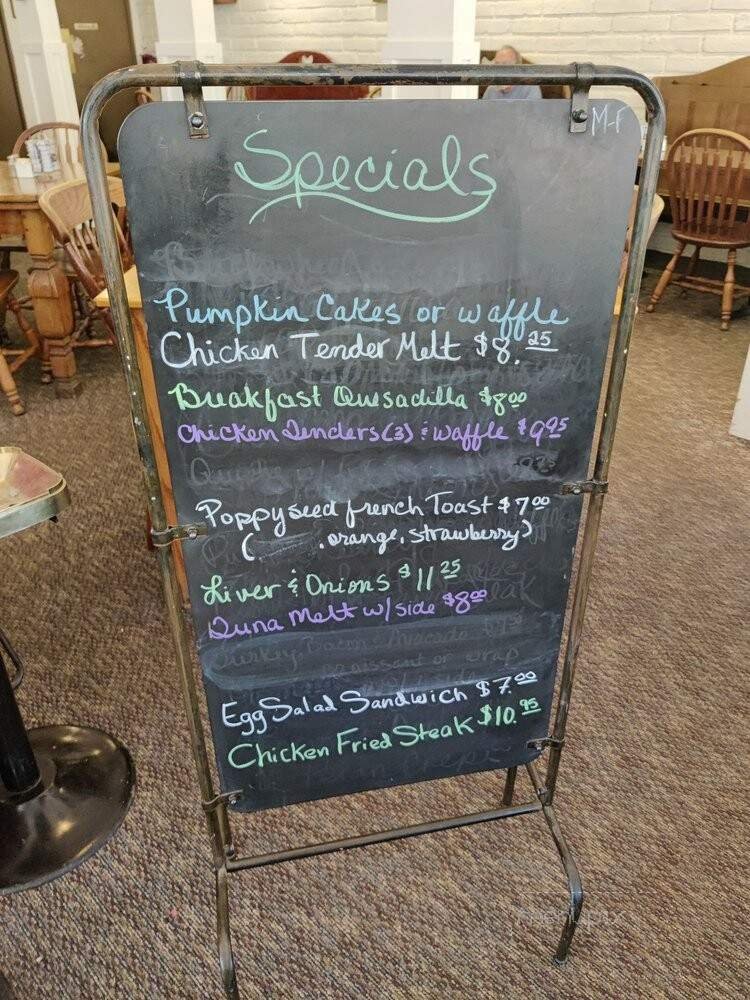 M-F
Specials
Pumpkin Cakes or waffle
Chicken Tender Melt $8.25
Breakfast Quesadilla $8.00
Chicken Tenders (3) & Waffle $9.95
Poppyseed french Toast $7.00
( , orange, strawberry)
Liver & Onions $11.25
Tuna Melt w/side $8.00
Turkey Bacon Avocado
croissant or wrap
Egg Salad Sandwich $7.00
Chicken Fried Steak $10.95